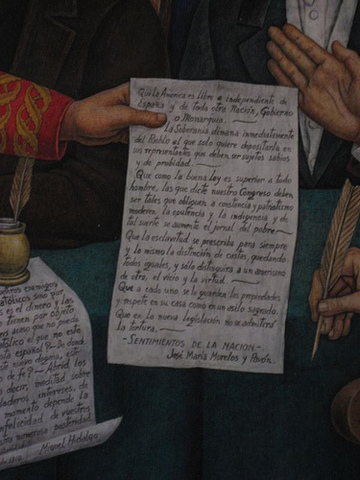 Que la America es libre e independiente de
España y de toda otra Nación, Gobierno
o Monarquía.
La Soberanía dimana inmediatamente
del Pueblo al que solo quiere depositarla en
sus representantes que deben ser sujetos sabios
y de probidad.
Que como la buena ley es superior a todo
hombre, las que dicte nuestro Congreso deben
ser tales que obliguen a constancia y patriotismo
moderen la opulencia y la indigencia y de
tal suerte se aumente el jornal del pobre
Que la esclavitud se proscriba para siempre
y lo mismo la distinción de castas, quedando
todos iguales, y sólo distinguirá a un americano
de otro, el vicio y la virtud.
Que a cada uno se le guarden las propiedades
y respete en su casa como en un asilo sagrado.
Que en la nueva legislación no se admitirá
la tortura.
-SENTIMIENTOS DE LA NACION-
José María Morelos y Pavón.
enemigos
católicos sino que
es el dinero y las
tienen por objeto
acaso que no puede
católico el que no está
español?
de fe? Abrid los
decir, meditad sobre
verdaderos intereses, de
momento depende la
infelicidad de vuestros
numerosa posteridad
Miguel Hidalgo